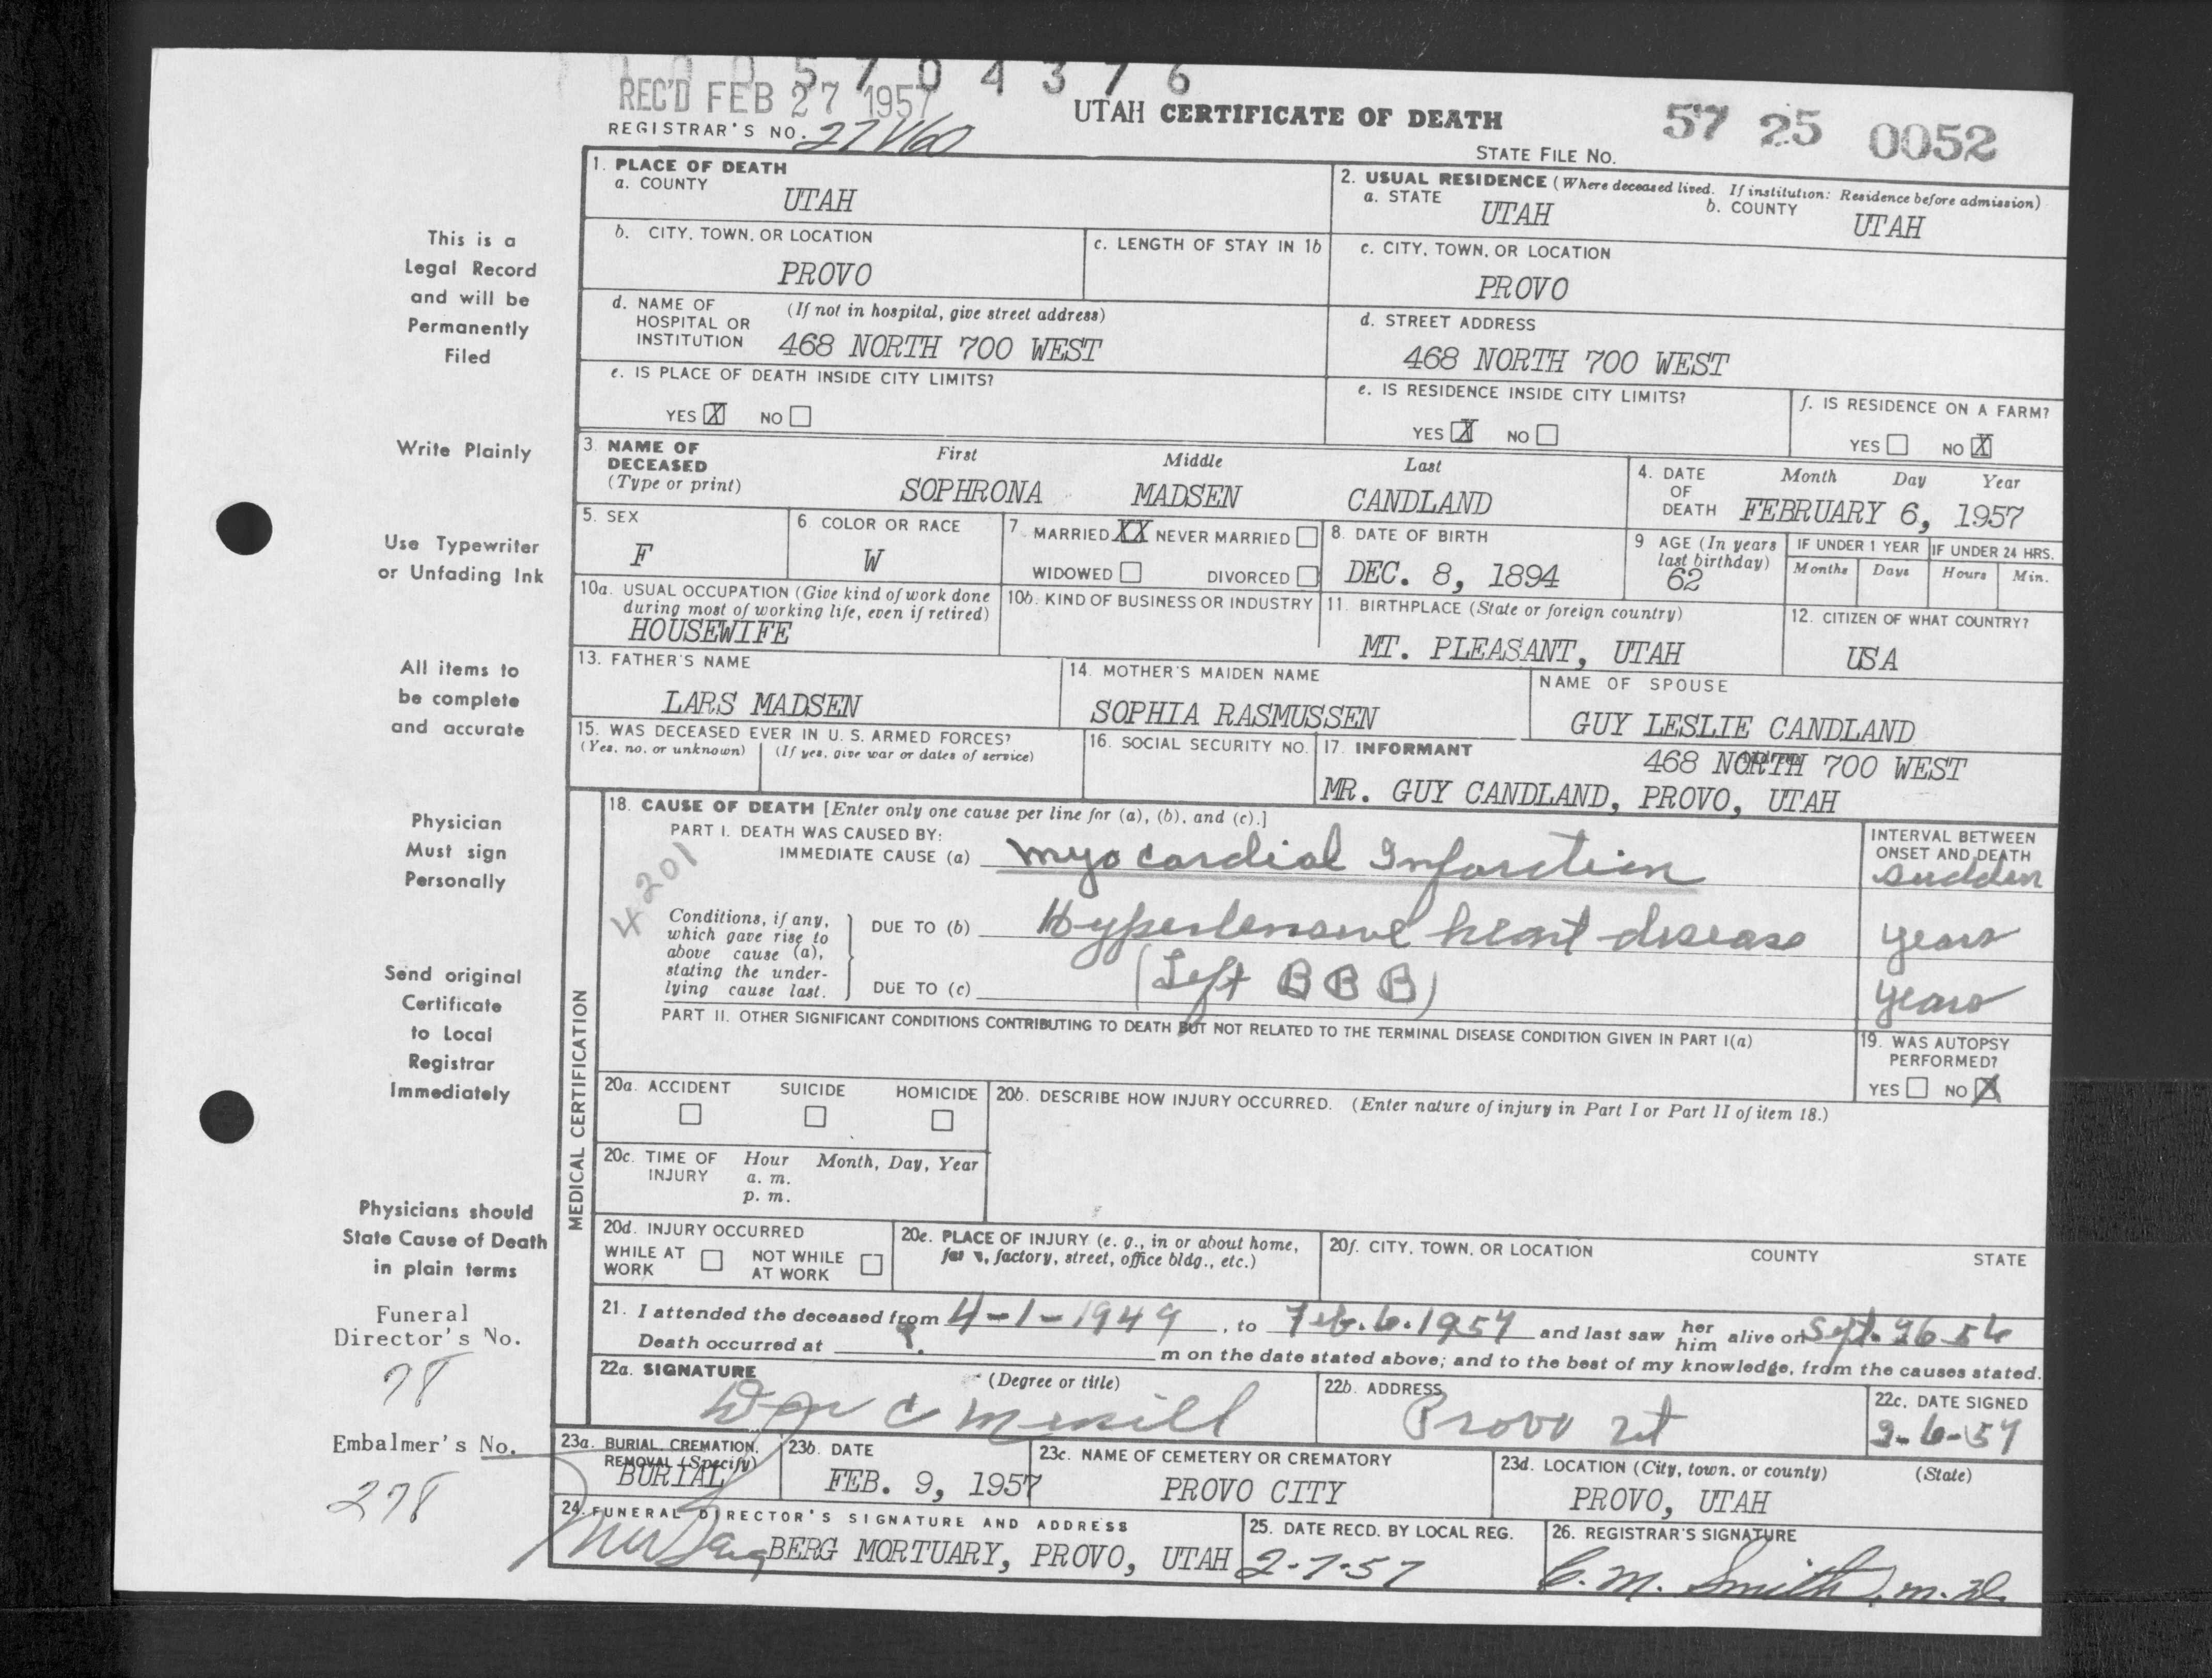 REC'D FEB 27 1957
5 7 0 4 3 7 6
REGISTRAR'S NO.
UTAH CERTIFICATE OF DEATH
57 25 0052
STATE FILE NO.
1. PLACE OF DEATH
a. COUNTY
UTAH
2. USUAL RESIDENCE (Where deceased lived. If institution: Residence before admission)
a. STATE
UTAH
b. COUNTY
UTAH
b. CITY, TOWN, OR LOCATION
PROVO
c. LENGTH OF STAY IN 1b
c. CITY, TOWN, OR LOCATION
PROVO
d. NAME OF HOSPITAL OR INSTITUTION
(If not in hospital, give street address)
468 NORTH 700 WEST
d. STREET ADDRESS
468 NORTH 700 WEST
e. IS PLACE OF DEATH INSIDE CITY LIMITS?
YES X NO
e. IS RESIDENCE INSIDE CITY LIMITS?
YES X NO
f. IS RESIDENCE ON A FARM?
YES NO X
3. NAME OF DECEASED (Type or print)
First Middle Last
SOPHRONA MADSEN CANDLAND
4. DATE OF DEATH
Month Day Year
FEBRUARY 6, 1957
5. SEX
F
6. COLOR OR RACE
W
7. MARRIED XX NEVER MARRIED
WIDOWED DIVORCED
8. DATE OF BIRTH
DEC. 8, 1894
9 AGE (In years last birthday)
62
IF UNDER 1 YEAR
Months Days
IF UNDER 24 HRS.
Hours Min.
10a. USUAL OCCUPATION (Give kind of work done during most of working life, even if retired)
HOUSEWIFE
10b. KIND OF BUSINESS OR INDUSTRY
11. BIRTHPLACE (State or foreign country)
MT. PLEASANT, UTAH
12. CITIZEN OF WHAT COUNTRY?
USA
13. FATHER'S NAME
LARS MADSEN
14. MOTHER'S MAIDEN NAME
SOPHIA RASMUSSEN
NAME OF SPOUSE
GUY LESLIE CANDLAND
15. WAS DECEASED EVER IN U. S. ARMED FORCES?
(Yes, no, or unknown) (If yes, give war or dates of service)
16. SOCIAL SECURITY NO.
17. INFORMANT
Address
468 NORTH 700 WEST
MR. GUY CANDLAND, PROVO, UTAH
MEDICAL CERTIFICATION
18. CAUSE OF DEATH [Enter only one cause per line for (a), (b), and (c).]
PART I. DEATH WAS CAUSED BY:
IMMEDIATE CAUSE (a) Myocardial Infarction
INTERVAL BETWEEN ONSET AND DEATH
sudden
4201
Conditions, if any, which gave rise to above cause (a), stating the underlying cause last.
DUE TO (b) Hypertensive heart disease
years
DUE TO (c) (Left BBB)
years
PART II. OTHER SIGNIFICANT CONDITIONS CONTRIBUTING TO DEATH BUT NOT RELATED TO THE TERMINAL DISEASE CONDITION GIVEN IN PART I(a)
19. WAS AUTOPSY PERFORMED?
YES NO X
20a. ACCIDENT SUICIDE HOMICIDE
20b. DESCRIBE HOW INJURY OCCURRED. (Enter nature of injury in Part I or Part II of item 18.)
20c. TIME OF INJURY
Hour Month, Day, Year
a. m.
p. m.
20d. INJURY OCCURRED
WHILE AT WORK NOT WHILE AT WORK
20e. PLACE OF INJURY (e. g., in or about home, farm, factory, street, office bldg., etc.)
20f. CITY, TOWN, OR LOCATION COUNTY STATE
21. I attended the deceased from 4-1-1949, to Feb. 6. 1957 and last saw her him alive on Sept. 26 56
Death occurred at m on the date stated above; and to the best of my knowledge, from the causes stated.
22a. SIGNATURE (Degree or title)
22b. ADDRESS
Provo Ut
22c. DATE SIGNED
2-6-57
23a. BURIAL, CREMATION, REMOVAL (Specify)
BURIAL
23b. DATE
FEB. 9, 1957
23c. NAME OF CEMETERY OR CREMATORY
PROVO CITY
23d. LOCATION (City, town, or county) (State)
PROVO, UTAH
24. FUNERAL DIRECTOR'S SIGNATURE AND ADDRESS
BERG MORTUARY, PROVO, UTAH
25. DATE RECD. BY LOCAL REG.
2-7-57
26. REGISTRAR'S SIGNATURE
C. M. Smith, m. D.
This is a
Legal Record
and will be
Permanently
Filed
Write Plainly
Use Typewriter
or Unfading Ink
All items to
be complete
and accurate
Physician
Must sign
Personally
Send original
Certificate
to Local
Registrar
Immediately
Physicians should
State Cause of Death
in plain terms
Funeral
Director's No.
78
Embalmer's No.
278